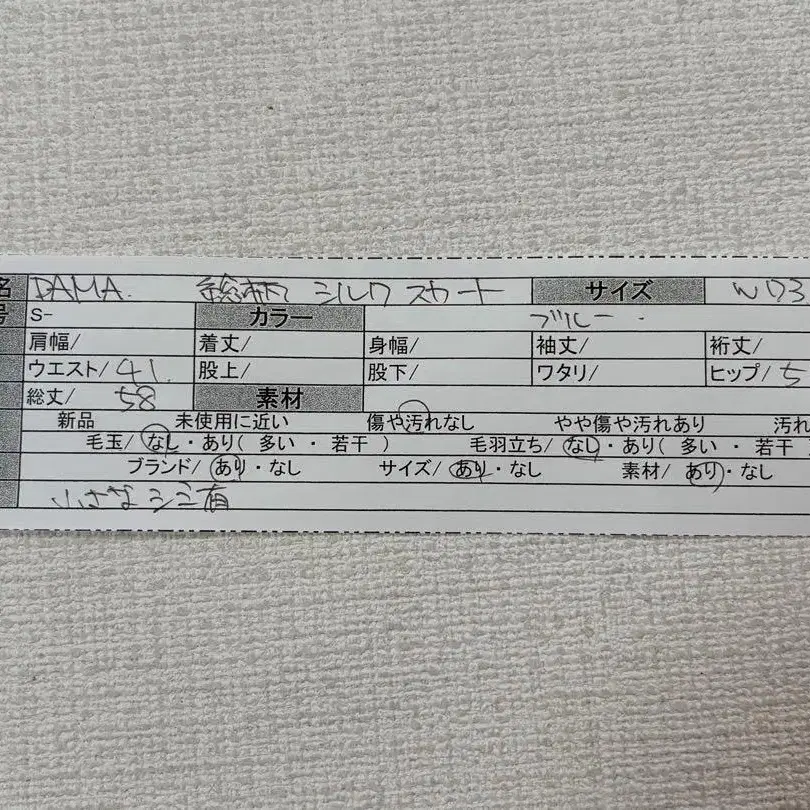 名 DAMA. 総柄 シルク スカート サイズ W73
号 S- カラー ブルー
肩幅/ 着丈/ 身幅/ 袖丈/ 裄丈/
ウエスト/ 41. 股上/ 股下/ ワタリ/ ヒップ/ 5
総丈/ 58 素材
新品 未使用に近い 傷や汚れなし やや傷や汚れあり 汚れ
毛玉/ なし・あり( 多い ・ 若干 ) 毛羽立ち/ なし・あり( 多い ・ 若干
ブランド/ あり・なし サイズ/ あり・なし 素材/ あり・なし
小さなシミ有